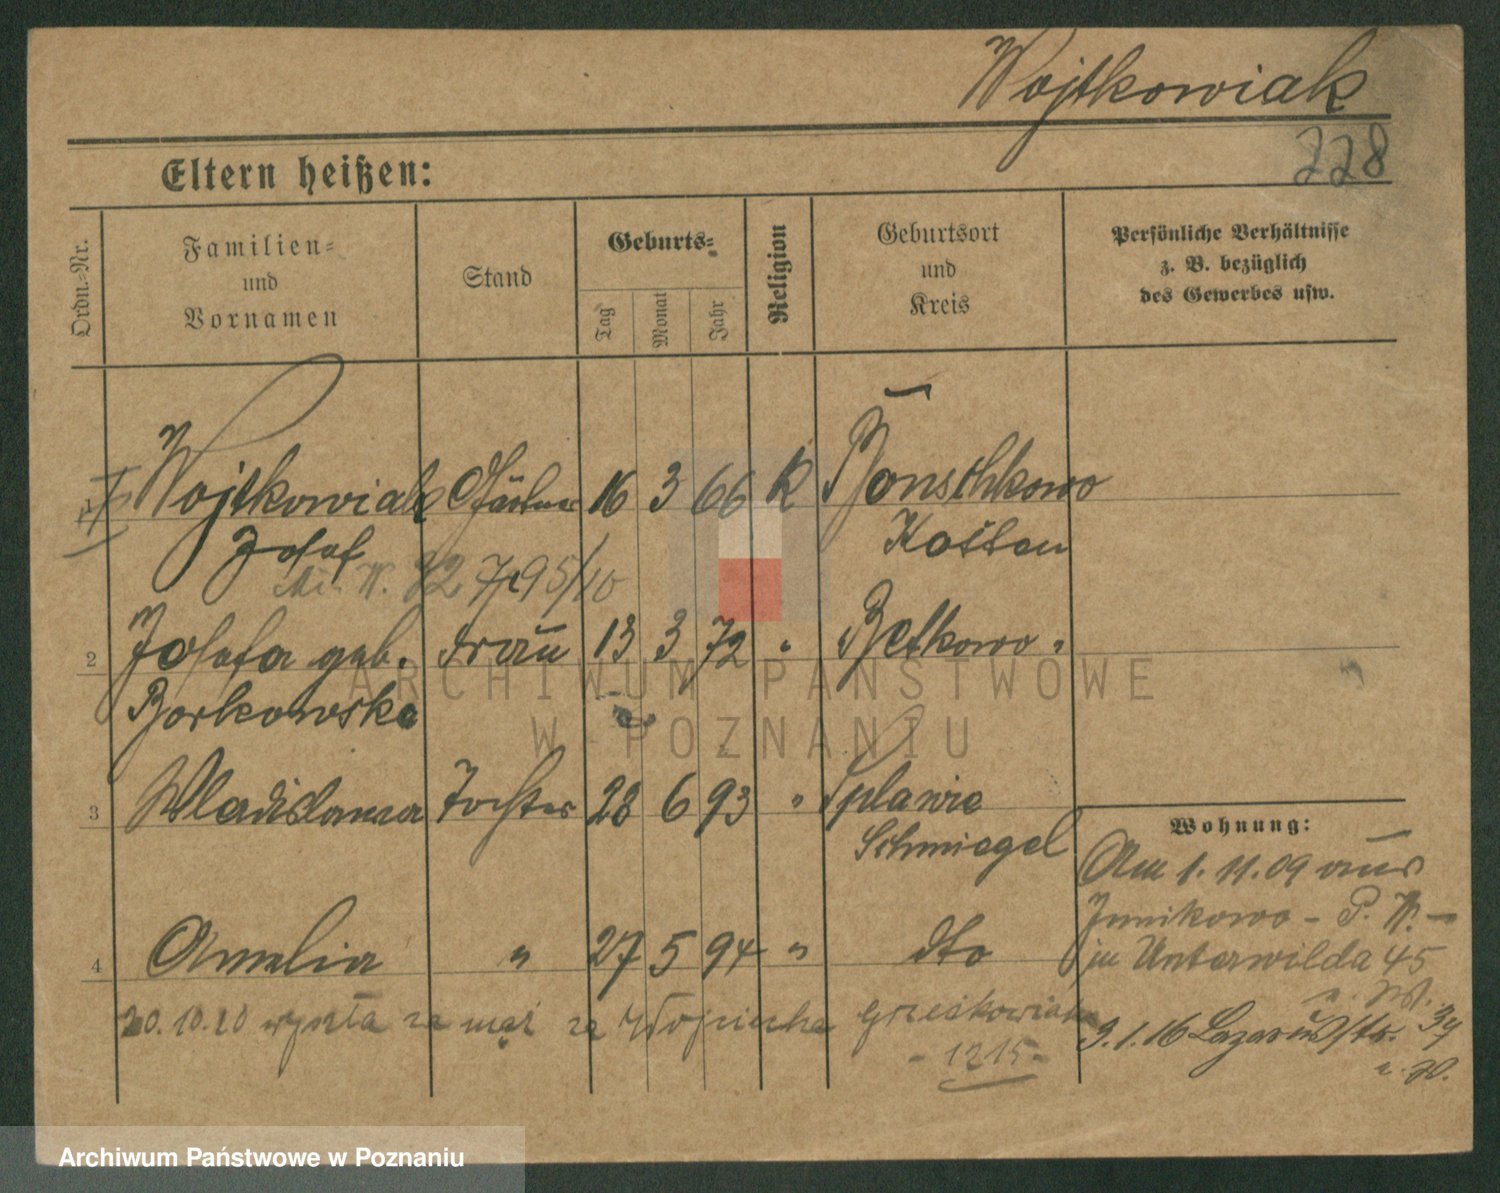 Wojtkowiak
228
Eltern heißen:
Ordn.-Nr.
Familien-
und
Vornamen
Stand
Geburts-
Tag
Monat
Jahr
Religion
Geburtsort
und
Kreis
Persönliche Verhältnisse
z. B. bezüglich
des Gewerbes usw.
Wojtkowiak Gärtner 16 3 66 K Bonschkowo
Josef Kosten
2 Josefa geb. Frau 13 3 72 " Betkowo "
Borkowska
3 Wladislawa Tochter 28 6 93 " Splawie
Schmiegel
4 Amelia " 27 5 94 " dto
20.10.20 wyszła za mąż za Wojciecha Grześkowiaka
- 1215 -
Wohnung:
Am 1.11.09 aus
Junikowo - P. W. -
in Unterwilda 45
3.1.16 Lazarusstr.
ARCHIWUM PAŃSTWOWE
W POZNANIU
Archiwum Państwowe w Poznaniu